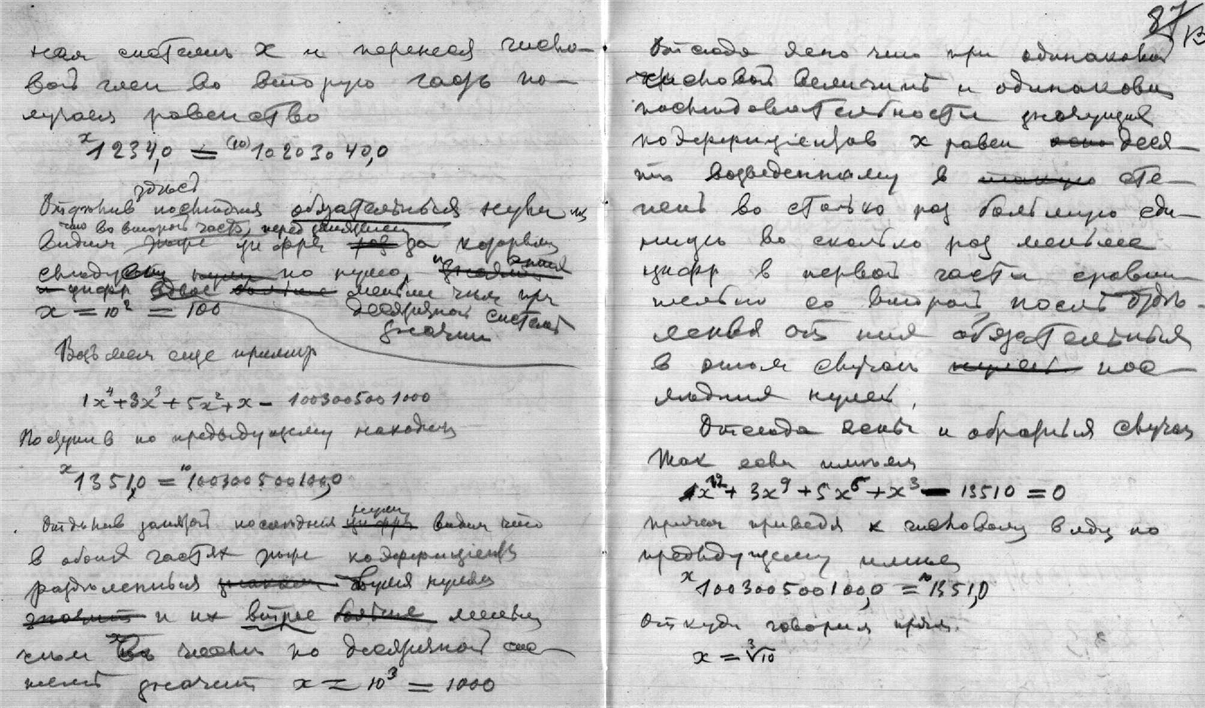 ная система x и перенеся число-
вой член во вторую часть по-
лучаем равенство
x1234,0 = (10)10203040,0
здесь
Отделив последния обязательныя нули
что во второй части, перед запятыми
видим же цифры за которыми
по нулю, и
цифр меньше чем при
x = 10² = 100 десятичной системе
значит
Возьмем еще пример
1x⁴+3x³+5x²+x - 1003005001000
Поступив по предыдущему находим
x1351,0 = 10100300500100,0
Отделив запятой последния нули видим что
в обоих частях же коэффициенты
двумя нулями
и их втрое меньше
чем число по десятичной сис-
теме значит x = 10³ = 1000
87
Отсюда ясно что при одинаковой
числовой величине и одинаковой
последовательности значущих
коэффициентов x равен деся-
ти возведенному в сте-
пень во столько раз большую еди-
ницы во сколько раз меньше
цифр в первой части сравни-
тельно со второй после отде-
ления от них обязательных
в этом случае пос-
ледних нулей.
Отсюда ясны и обратныя случаи
Так если имеем
1x¹²+3x⁹+5x⁶+x³ - 13510 = 0
причем приведя к числовому виду по
предыдущему имеем
x100300500100,0 = 101351,0
откуда говорим прям.
x = ³√10